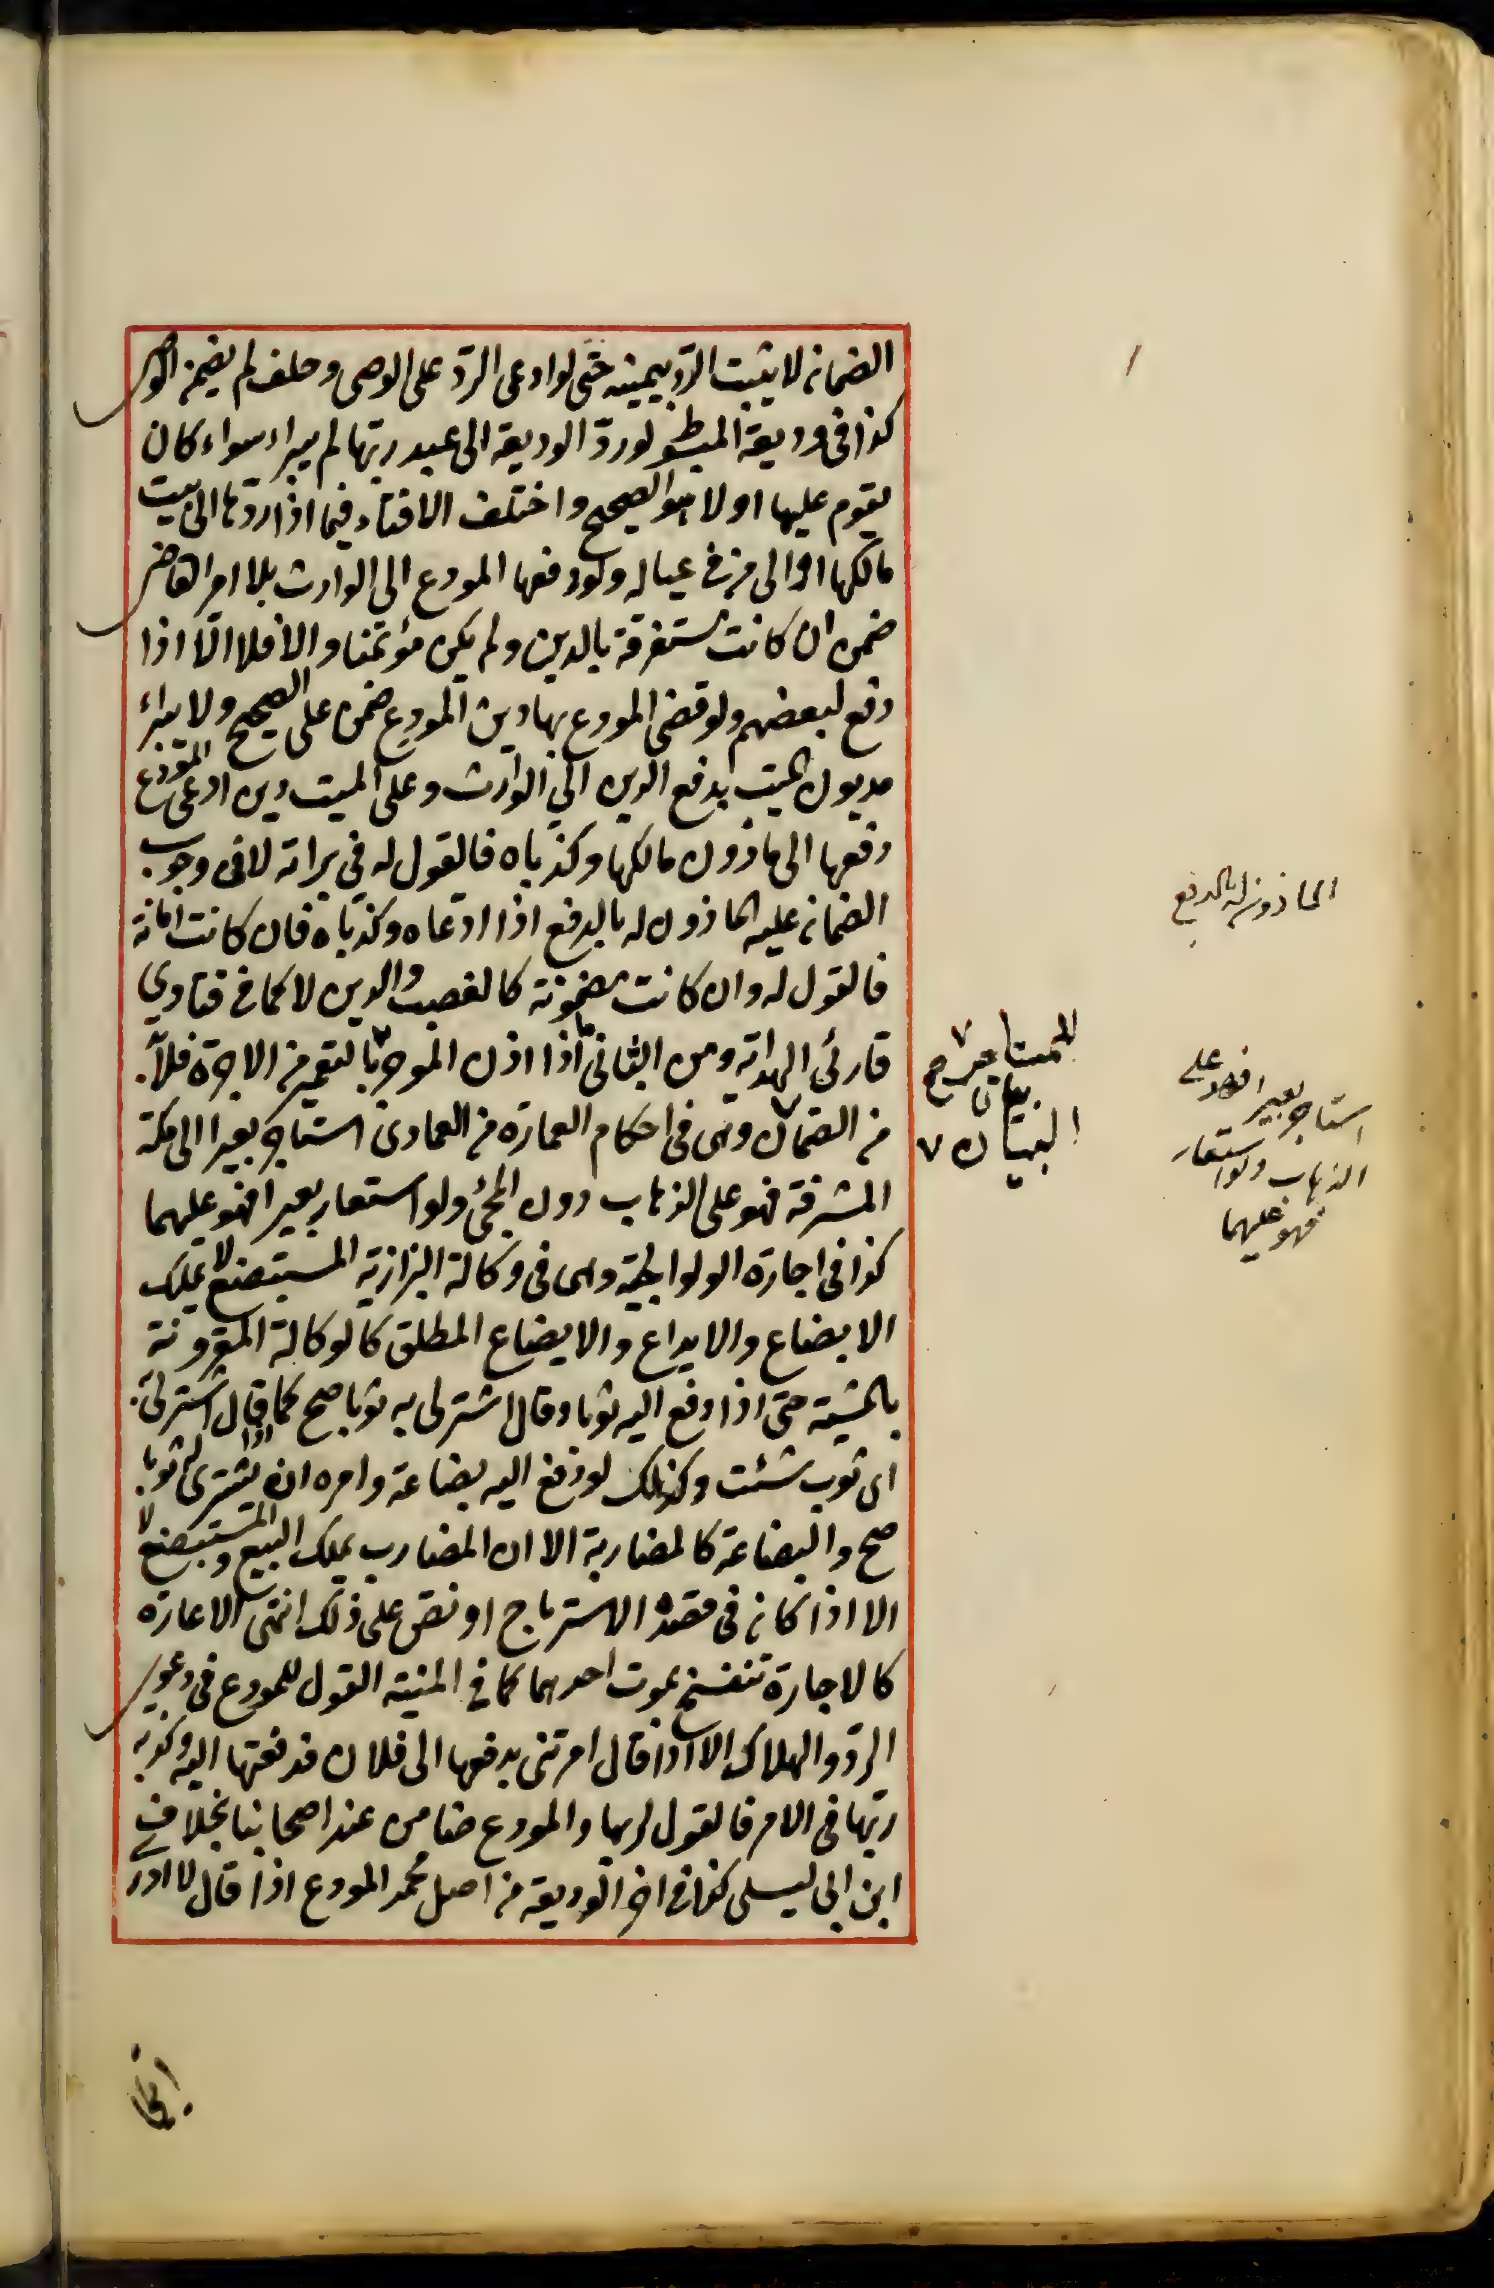 الضمانه لا يثبت الرد بيمينه حتى لو ادعى الرد على الوصى وحلف لم يضمنه الوصى
كذا فى وديعة المبسوط لو ردّ الوديعة الى عبد ربّها لم يبراء سواء كان
يقوم عليها او لا هو الصحيح واختلف الافتاء فيما اذا ردّها الى بيت
مالكها او الى من فى عياله ولو دفعها المودع الى الوارث بلا امر القاضى
ضمن ان كانت مستغرقة بالدين ولم يكن مؤتمنا والا فلا الّا اذا
دفع لبعضهم ولو قضى المودع بها دين المودع ضمن على الصحيح ولا يبراء
مديون الميت بدفع الدين الى الوارث وعلى الميت دين ادعى المودع
دفعها الى ماذون مالكها وكذباه فالقول له فى براته لا فى وجوب
الضمان عليه الماذون له بالدفع اذا ادّعاه وكذّباه فان كانت امانة
فالقول له وان كانت مضمونة كالغصب والدين لا كما فى فتاوى
قارئ الهداية ومن الثانى ما اذا اذن الموجر بالتعمير من الاجرة فلا
من الضمان وهى فى احكام العمارة من العمادى استاجر بعيرا الى مكة
المشرفة فهو على الذهاب دون المجئ ولو استعار بعيرا فهو عليهما
كذا فى اجارة الولوالجية وهى فى وكالة البزازية المستبضع لا يملك
الابضاع والايداع والابضاع المطلق كالوكالة المقرونة
بالمشيّة حتى اذا دفع اليه ثوبا وقال اشتر لى به ثوبا صح كما اذا قال اشتر لى
اى ثوب شئت وكذلك لو دفع اليه بضاعة وامره ان يشترى له ثوبا
صح والبضاعة كالمضاربة الا ان المضارب يملك البيع والمستبضع لا
الا اذا كان فى قصده الاسترباح او نص على ذلك انتهى الاعارة
كالاجارة تنفسخ بموت احدهما كما فى المنية القول للمودع فى دعوى
الردّ والهلاك الا اذا قال امرتنى بدفعها الى فلان فدفعتها اليه وكذبه
ربّها فى الامر فالقول لربها والمودع ضامن عند اصحابنا بخلاف
ابن ابى ليلى كذا فى اخر الوديعة من اصل محمد المودع اذا قال لا ادرى
الماذون له بالدفع
للمستاجر
بيان
البنيان ٧
استاجر بعير افهو على
الذهاب ولو استعار
فهو عليهما